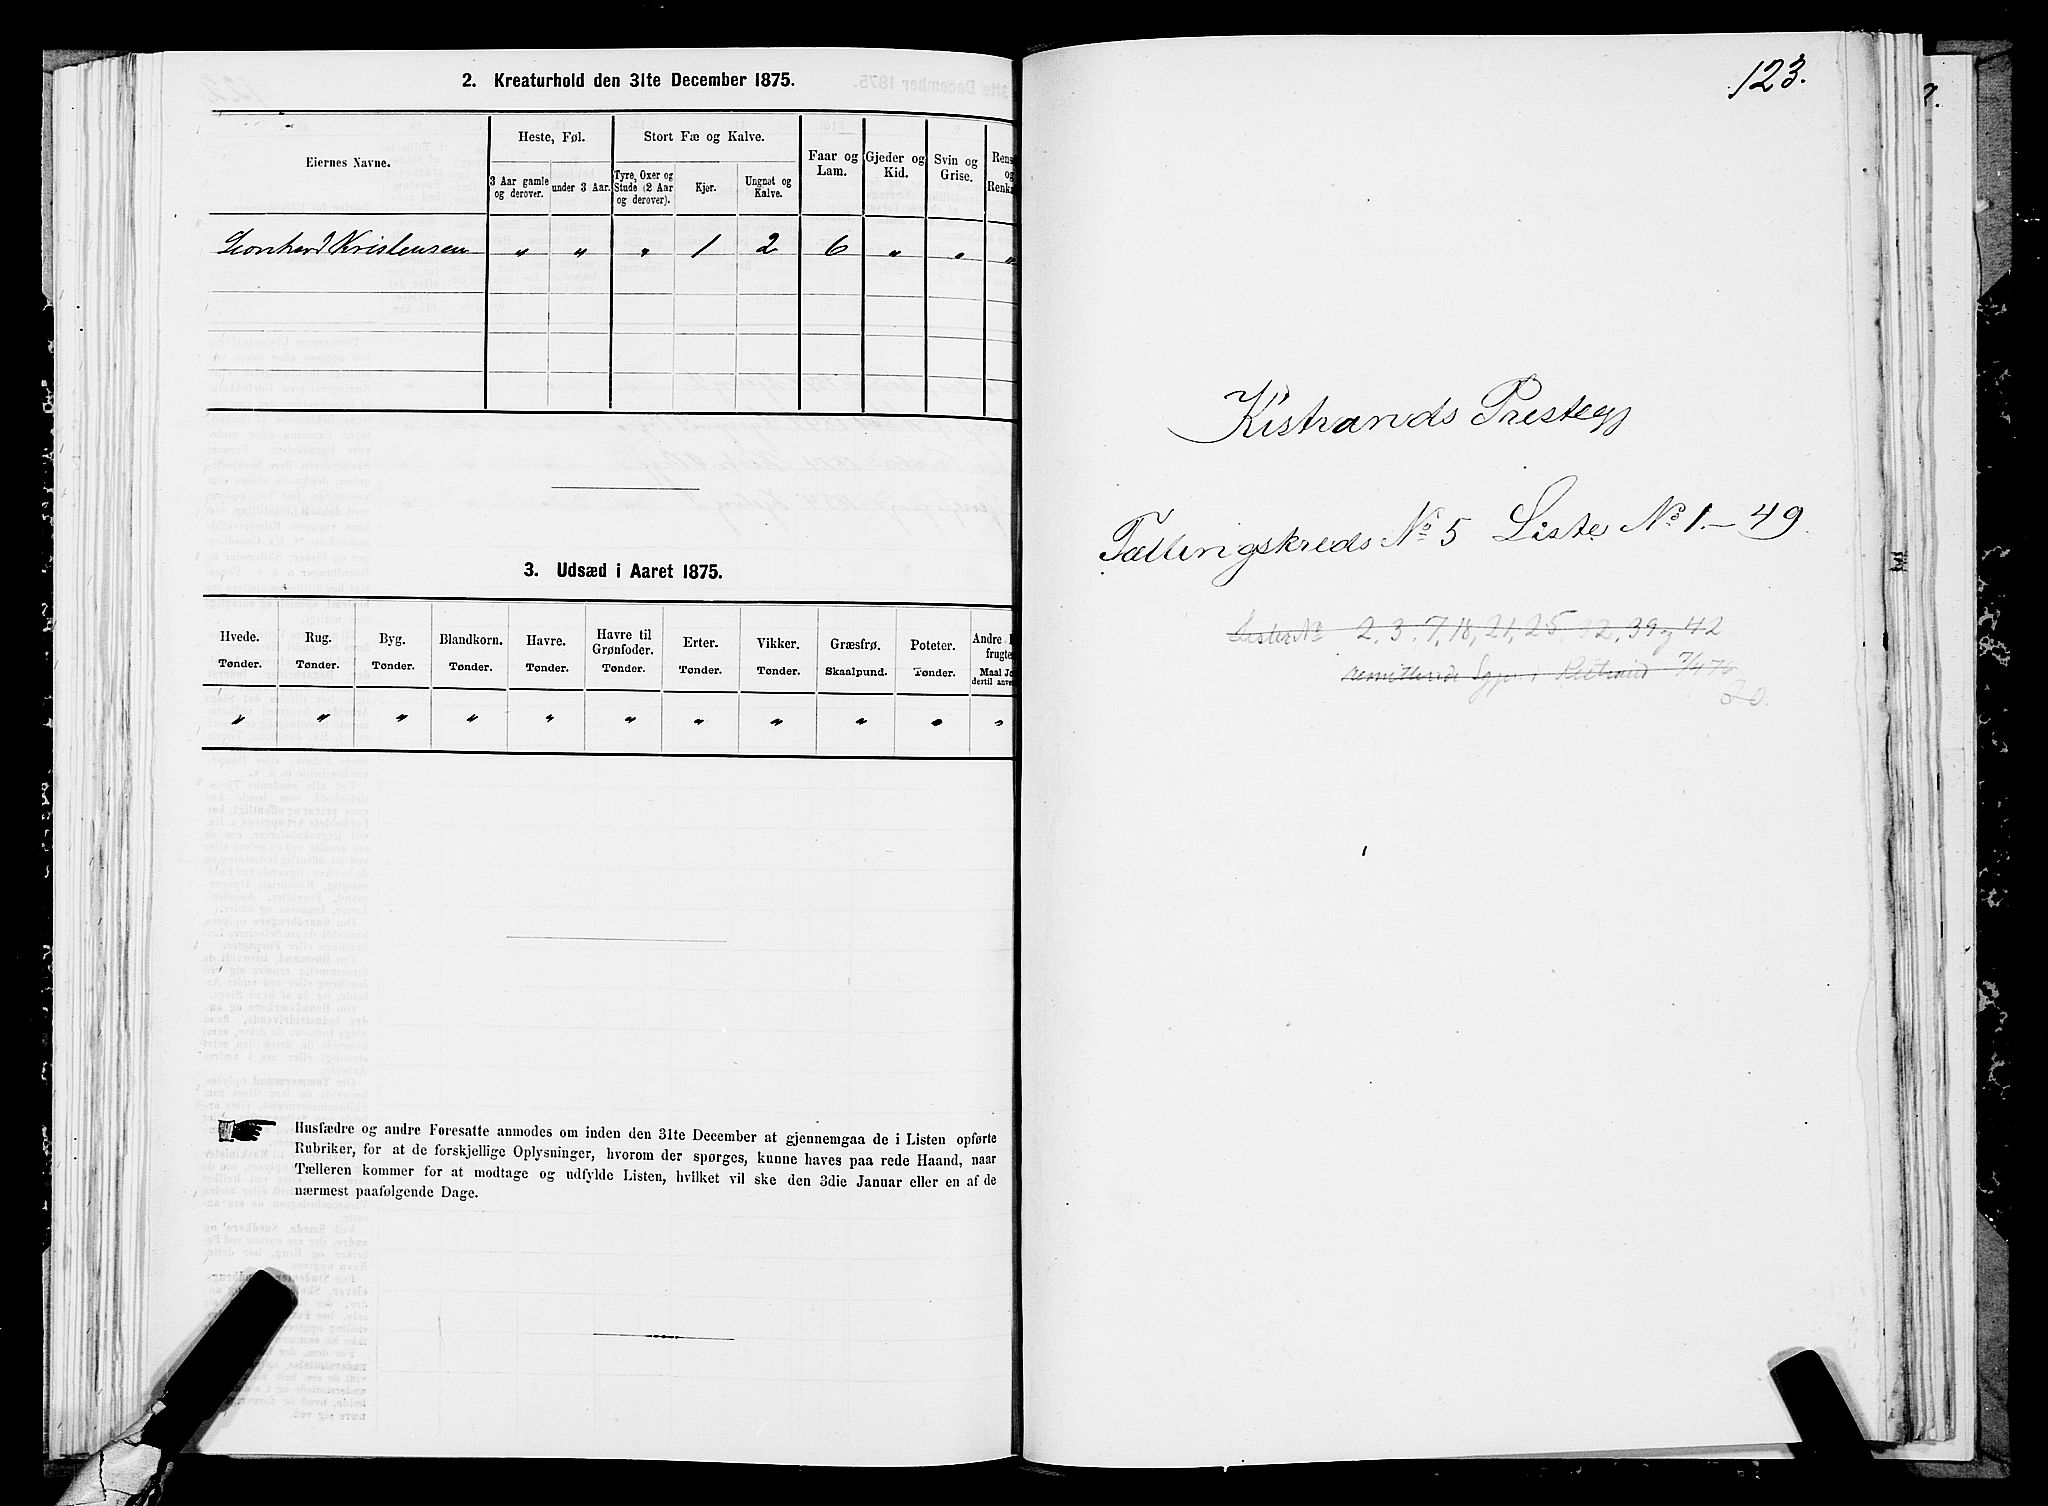 2. Kreaturhold den 31te December 1875.
Eiernes Navne.
Heste, Føl.
Stort Fæ og Kalve.
3 Aar gamle og derover.
under 3 Aar.
Tyre, Oxer og Stude (2 Aar og derover).
Kjør.
Ungnøt og Kalve.
Faar og Lam.
Gjeder og Kid.
Svin og Grise.
Rens
og
Renka
Leonhard Kristensen " " " 1 2 6 " " "
3. Udsæd i Aaret 1875.
Hvede. Rug. Byg. Blandkorn. Havre. Havre til Grønfoder. Erter. Vikker. Græsfrø. Poteter. Andre
frugte
Tønder. Tønder. Tønder. Tønder. Tønder. Tønder. Tønder. Tønder. Skaalpund. Tønder. Maal Jo
dertil anve
" " " " " " " " " " "
Husfædre og andre Foresatte anmodes om inden den 31te December at gjennemgaa de i Listen opførte
Rubriker, for at de forskjellige Oplysninger, hvorom der spørges, kunne haves paa rede Haand, naar
Tælleren kommer for at modtage og udfylde Listen, hvilket vil ske den 3die Januar eller en af de
nærmest paafølgende Dage.
123.
Kistrands Prestegj
Tællingskreds No 5 Liste No 1.-49.
Lister No 2, 3, 7, 18, 21, 25, 32, 39 og 42